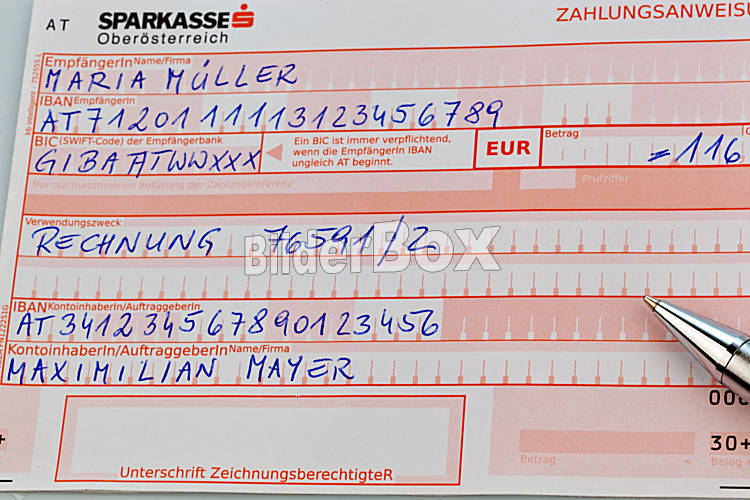 AT SPARKASSE
Oberösterreich
ZAHLUNGSANWEISU
EmpfängerIn Name/Firma
MARIA MÜLLER
IBAN EmpfängerIn
AT712011111312345 6789
BIC (SWIFT-Code) der Empfängerbank
GIBAATWWXXX
Ein BIC ist immer verpflichtend,
wenn die EmpfängerIn IBAN
ungleich AT beginnt.
EUR
Betrag
=116
Nur zur maschinellen Befüllung der Zahlungsreferenz
Prüfziffer
Verwendungszweck
RECHNUNG 76591/2
BilderBOX
IBAN KontoinhaberIn/AuftraggeberIn
AT341234567890123456
KontoinhaberIn/AuftraggeberIn Name/Firma
MAXIMILIAN MAYER
Unterschrift ZeichnungsberechtigteR
Betrag <
30+
Beleg +